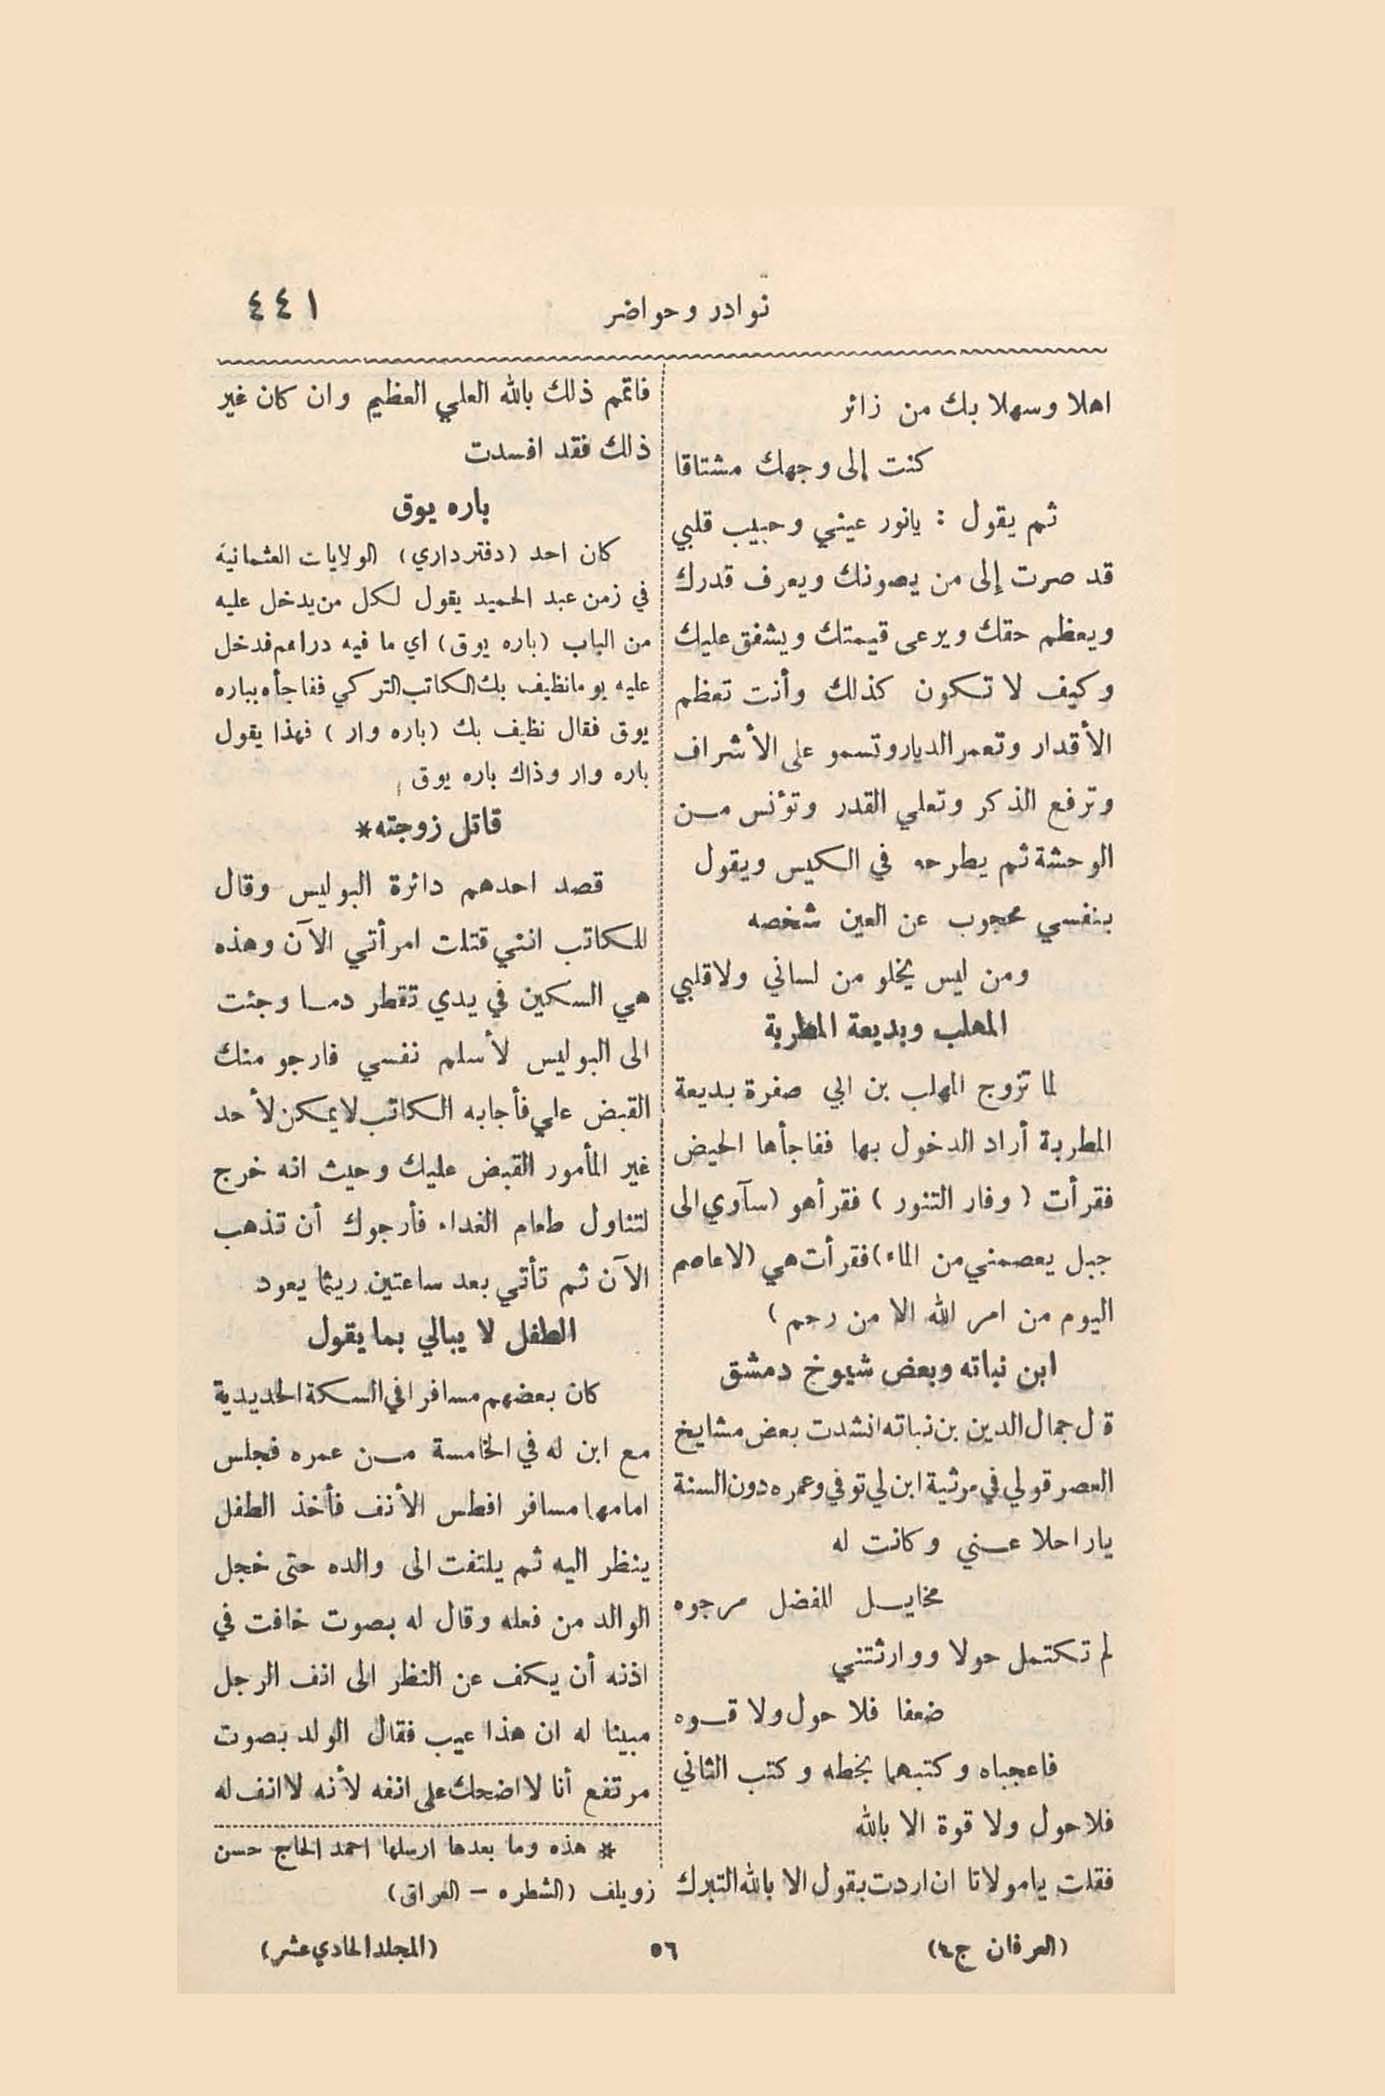 نوادر وحواضر
٤٤١
اهلا وسهلا بك من زائر
كنت إلى وجهك مشتاقا
ثم يقول : يانور عيني وحبيب قلبي
قد صرت إلى من يصونك ويعرف قدرك
ويعظم حقك ويرعى قيمتك ويشفق عليك
وكيف لا تكون كذلك وأنت تعظم
الأقدار وتعمر الديار وتسمو على الأشراف
وترفع الذكر وتعلي القدر وتؤنس مـن
الوحشة ثم يطرحه في الكيس ويقول
بنفسي محجوب عن العين شخصه
ومن ليس يخلو من لساني ولا قلبي
المهلب وبديعة المطربة
لما تزوج المهلب بن ابي صفرة بديعة
المطربة أراد الدخول بها ففاجأها الحيض
فقرأت ( وفار التنور ) فقرأ هو (سآوي الى
جبل يعصمني من الماء) فقرأت هي (لا عاصم
اليوم من امر الله الا من رحم )
ابن نباته وبعض شيوخ دمشق
قال جمال الدين بن نباته انشدت بعض مشايخ
العصر قولي في مرثية ابن لي توفي وعمره دون السنة
يا راحلا عـني وكانت له
مخايـل للفضل مرجوه
لم تكتمل حولا وورثتني
ضعفا فلا حول ولا قـوه
فاعجباه وكتبهما بخطه وكتب الثاني
فلا حول ولا قوة الا بالله
فقلت يا مولانا ان اردت بقول الا بالله التبرك
فاتمم ذلك بالله العلي العظيم وان كان غير
ذلك فقد افسدت
باره يوق
كان احد (دفترداري) الولايات العثمانية
في زمن عبد الحميد يقول لكل من يدخل عليه
من الباب (باره يوق) اي ما فيه دراهم فدخل
عليه يوما نظيف بك الكاتب التركي ففاجأه بباره
يوق فقال نظيف بك (باره وار ) فهذا يقول
باره وار وذاك باره يوق
قاتل زوجته*
قصد احدهم دائرة البوليس وقال
للكاتب انني قتلت امرأتي الآن وهذه
هي السكين في يدي تقطر دمـا وجئت
الى البوليس لأسلم نفسي فارجو منك
القبض علي فأجابه الكاتب لا يمكن لأحد
غير المأمور القبض عليك وحيث انه خرج
لتناول طعام الغداء فأرجوك أن تذهب
الآن ثم تأتي بعد ساعتين ريثما يعود
الطفل لا يبالي بما يقول
كان بعضهم مسافرا في السكة الحديدية
مع ابن له في الخامسة مـن عمره فجلس
امامهما مسافر افطس الأنف فأخذ الطفل
ينظر اليه ثم يلتفت الى والده حتى خجل
الوالد من فعله وقال له بصوت خافت في
اذنه أن يكف عن النظر الى انف الرجل
مبينا له ان هذا عيب فقال الولد بصوت
مرتفع أنا لا اضحك على انفه لأنه لا انف له
* هذه وما بعدها ارسلها احمد الحاج حسن
زويلف (الشطره - العراق)
(العرفان ج٤)
٥٦
(المجلد الحادي عشر)